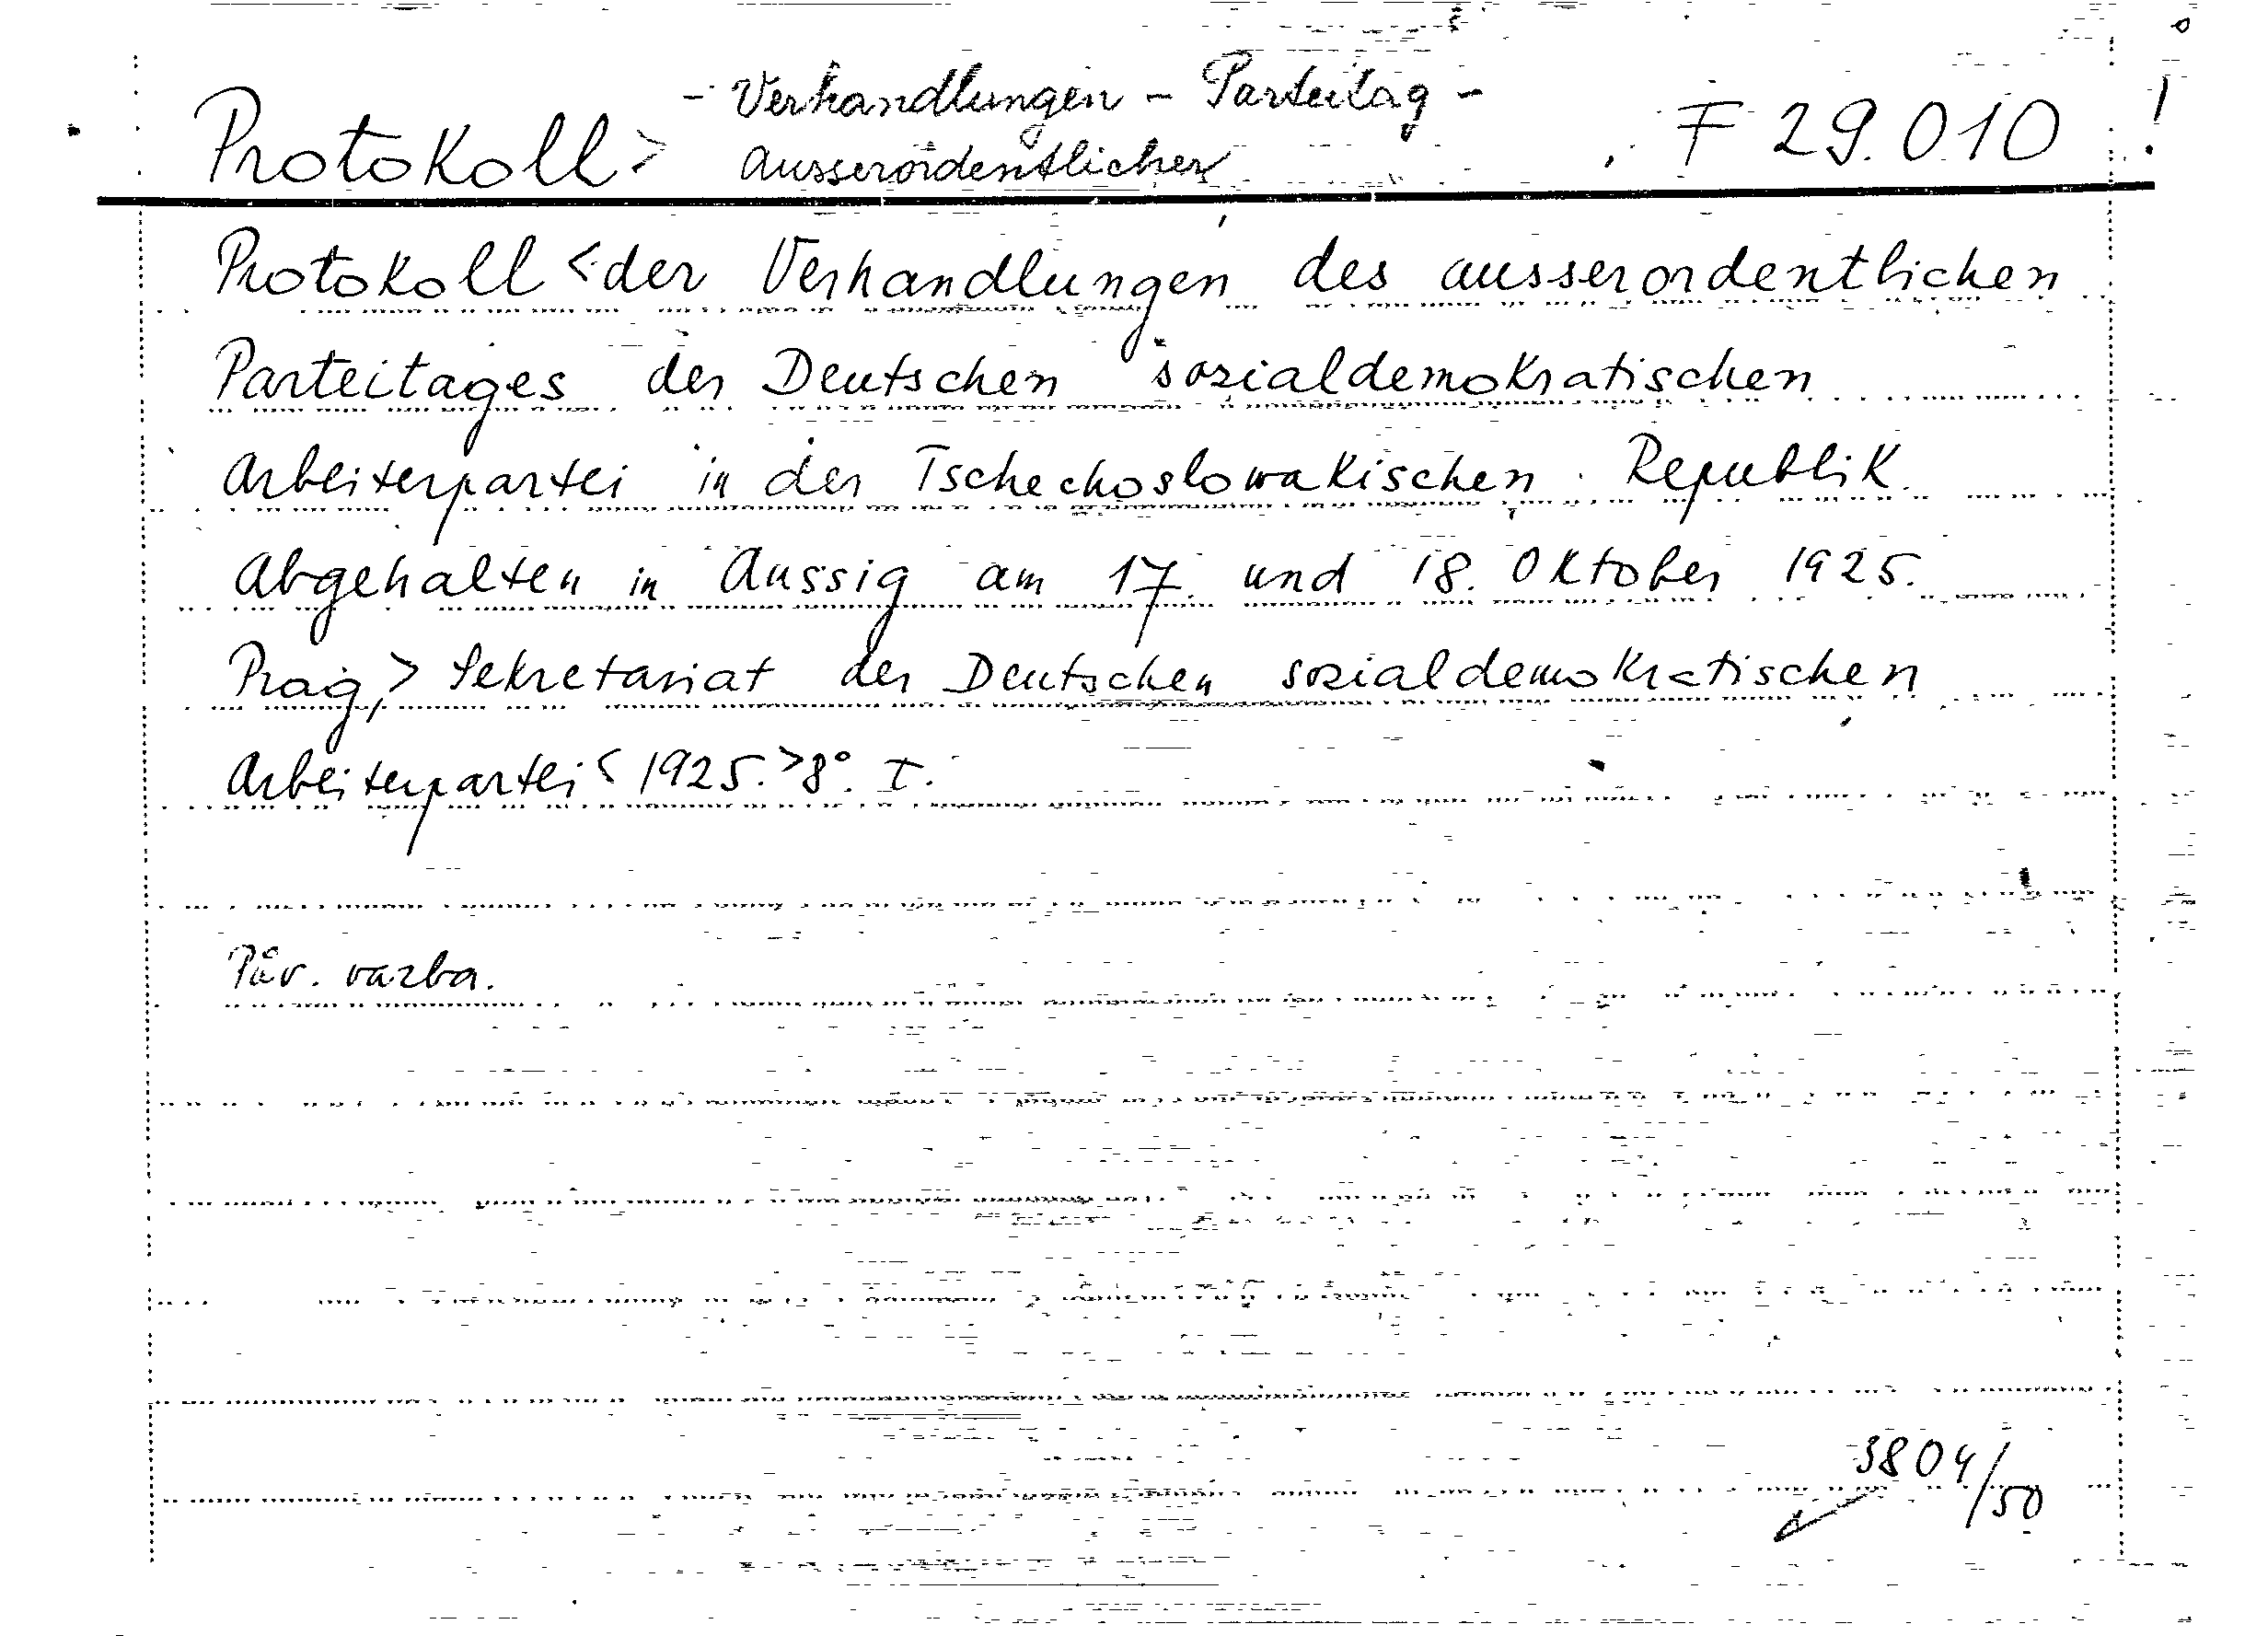 - Verhandlungen - Parteitag -
Protokoll > ausserordentlicher F 29.010 !
Protokoll < der Verhandlungen des ausserordentlichen
Parteitages der Deutschen sozialdemokratischen
Arbeiterpartei in der Tschechoslowakischen Republik.
Abgehalten in Aussig am 17. und 18. Oktober 1925.
Prag, > Sekretariat der Deutschen sozialdemokratischen
Arbeiterpartei < 1925. > 8°. I.
Pův. vazba.
3804/50